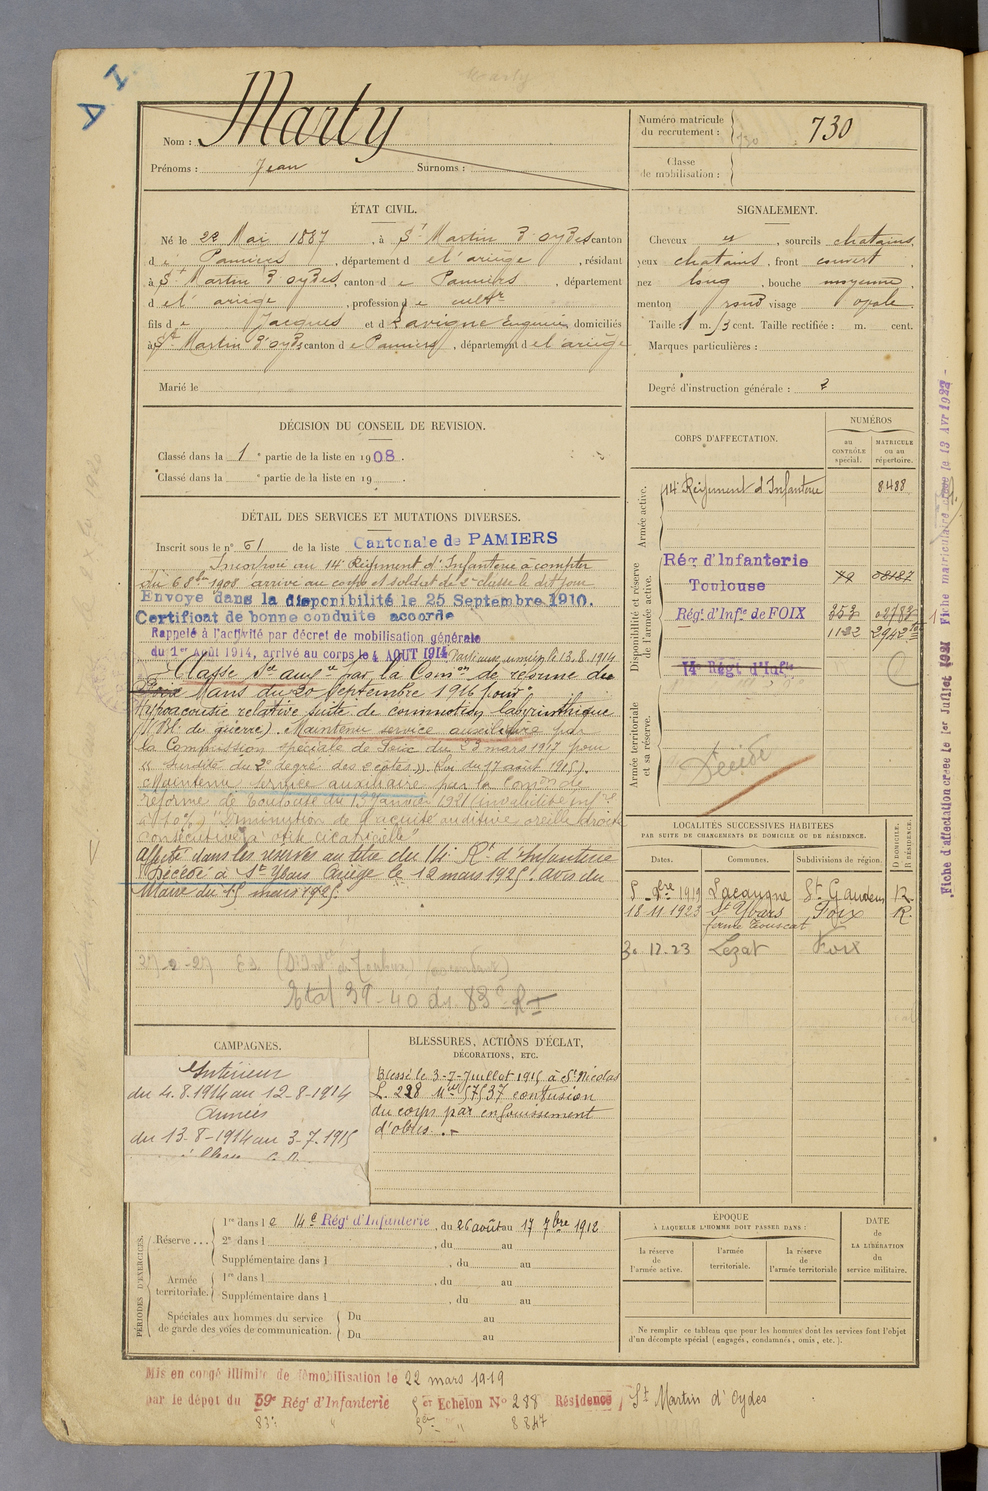 Marty
A I
Nom : Marty
Prénoms : Jean Surnoms :
Numéro matricule du recrutement : 730
Classe de mobilisation :
ÉTAT CIVIL.
Né le 22 Mai 1887, à St Martin d'oydes canton
de Pamiers, département de l'ariège, résidant
à St Martin d'oydes, canton de Pamiers, département
de l'ariège, profession de cultr
fils de Jacques et de Lavigne Eugénie, domiciliés
à St Martin d'oydes canton de Pamiers, département de l'ariège
Marié le
SIGNALEMENT.
Cheveux et, sourcils chatains,
yeux chatains, front couvert,
nez long, bouche moyenne,
menton rond visage ovale
Taille 1 m. cent. Taille rectifiée : m. cent.
Marques particulières :
Degré d'instruction générale : 2
DÉCISION DU CONSEIL DE REVISION.
Classé dans la 1e partie de la liste en 1908.
Classé dans la e partie de la liste en 19
CORPS D'AFFECTATION.
NUMÉROS
au CONTRÔLE spécial.
MATRICULE ou au répertoire.
Armée active.
14e Régiment d'Infanterie 8488
Disponibilité et réserve de l'armée active.
Rég d'Infanterie
Toulouse
Régt d'Infie de FOIX 253 02783
1122
14e Régt d'Infie
Armée territoriale et sa réserve.
Décédé
DÉTAIL DES SERVICES ET MUTATIONS DIVERSES.
Inscrit sous le n° 61 de la liste Cantonale de PAMIERS
Incorporé au 14e Régiment d'Infanterie à compter
du 6 8bre 1908 arrivé au corps et soldat de 2e classe le dit jour
Envoyé dans la disponibilité le 25 Septembre 1910.
Certificat de bonne conduite accordé
Rappelé à l'activité par décret de mobilisation générale
du 1er Août 1914, arrivé au corps le 4 AOUT 1914 Parti aux armées le 13.8.1914
Classé Sce auxre par la Comon de réforme du
Mans du 20 Septembre 1916 pour
Hypoacousie relative suite de commotion labyrinthique
(Bl. de guerre). Maintenu service auxiliaire par
la Commission spéciale de Foix du 23 mars 1917 pour
« Surdité du 2e degré des 2 côtés ». (Loi du 17 août 1915).
Maintenu service auxiliaire par la Comon de
réforme de Toulouse du 13 Janvier 1921 (invalidité infre
à 10%) "Diminution de l'acuité auditive oreille droite
consécutive à otite cicatricielle"
Affecté dans les réserves au titre du 14e Rt d'Infanterie
Décédé à St Ybars Ariège le 12 mars 1925. Avis du
Maire du 15 mars 1925.
Etat 39-40 du 83e RI
LOCALITÉS SUCCESSIVES HABITÉES
PAR SUITE DE CHANGEMENTS DE DOMICILE OU DE RÉSIDENCE.
Dates. Communes. Subdivisions de région. D DOMICILE. R RÉSIDENCE.
1919 Lacaugne St Gaudens R
18 11 1923 St Ybars Foix R.
ferme
30 12.23 Lézat Foix
CAMPAGNES.
Intérieur
du 4.8.1914 au 12-8-1914
Armées
du 13-8-1914 au 3-7.1915
BLESSURES, ACTIONS D'ÉCLAT,
DÉCORATIONS, ETC.
Blessé le 3-7-Juillet 1915 à St Nicolas
contusion
du corps par enfouissement
d'obus.
PÉRIODES D'EXERCICES.
Réserve ... 1re dans le 14e Régt d'Infanterie, du 26 août au 17 7bre 1912
2e dans l , du au
Supplémentaire dans l , du au
Armée territoriale. 1re dans l , du au
Supplémentaire dans l , du au
Spéciales aux hommes du service de garde des voies de communication. Du au
Du au
ÉPOQUE
À LAQUELLE L'HOMME DOIT PASSER DANS :
la réserve de l'armée active.
l'armée territoriale.
la réserve de l'armée territoriale
DATE de LA LIBÉRATION du service militaire.
Ne remplir ce tableau que pour les hommes dont les services font l'objet
d'un décompte spécial (engagés, condamnés, omis, etc.).
Mis en congé illimité de démobilisation le 22 mars 1919
par le dépôt du 59e Rég' d'Infanterie 5er Echelon N° 288 Résidence St Martin d'Oydes
83e " " 8847
Fiche d'affectation créée le 1er Juillet 1921 Fiche matriculaire créée le 13 Avr 1922